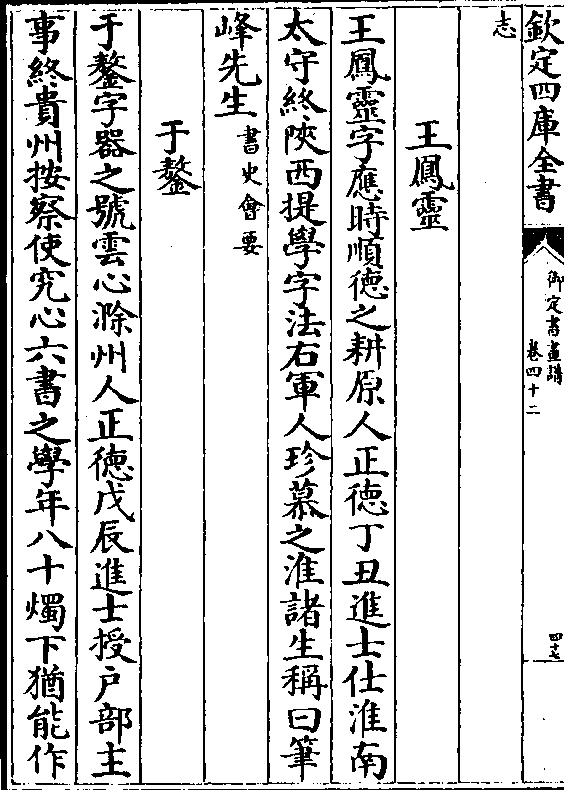 欽定四庫全書
御定書畫譜
卷四十二
四十七
志
王鳳靈
王鳳靈字應時順徳之耕原人正徳丁丑進士仕淮南
太守終陜西提學字法右軍人珍慕之淮諸生稱曰筆
峰先生
書史會要
于鏊
于鏊字器之號雲心滁州人正徳戊辰進士授户部主
事終貴州按察使究心六書之學年八十燭下猶能作